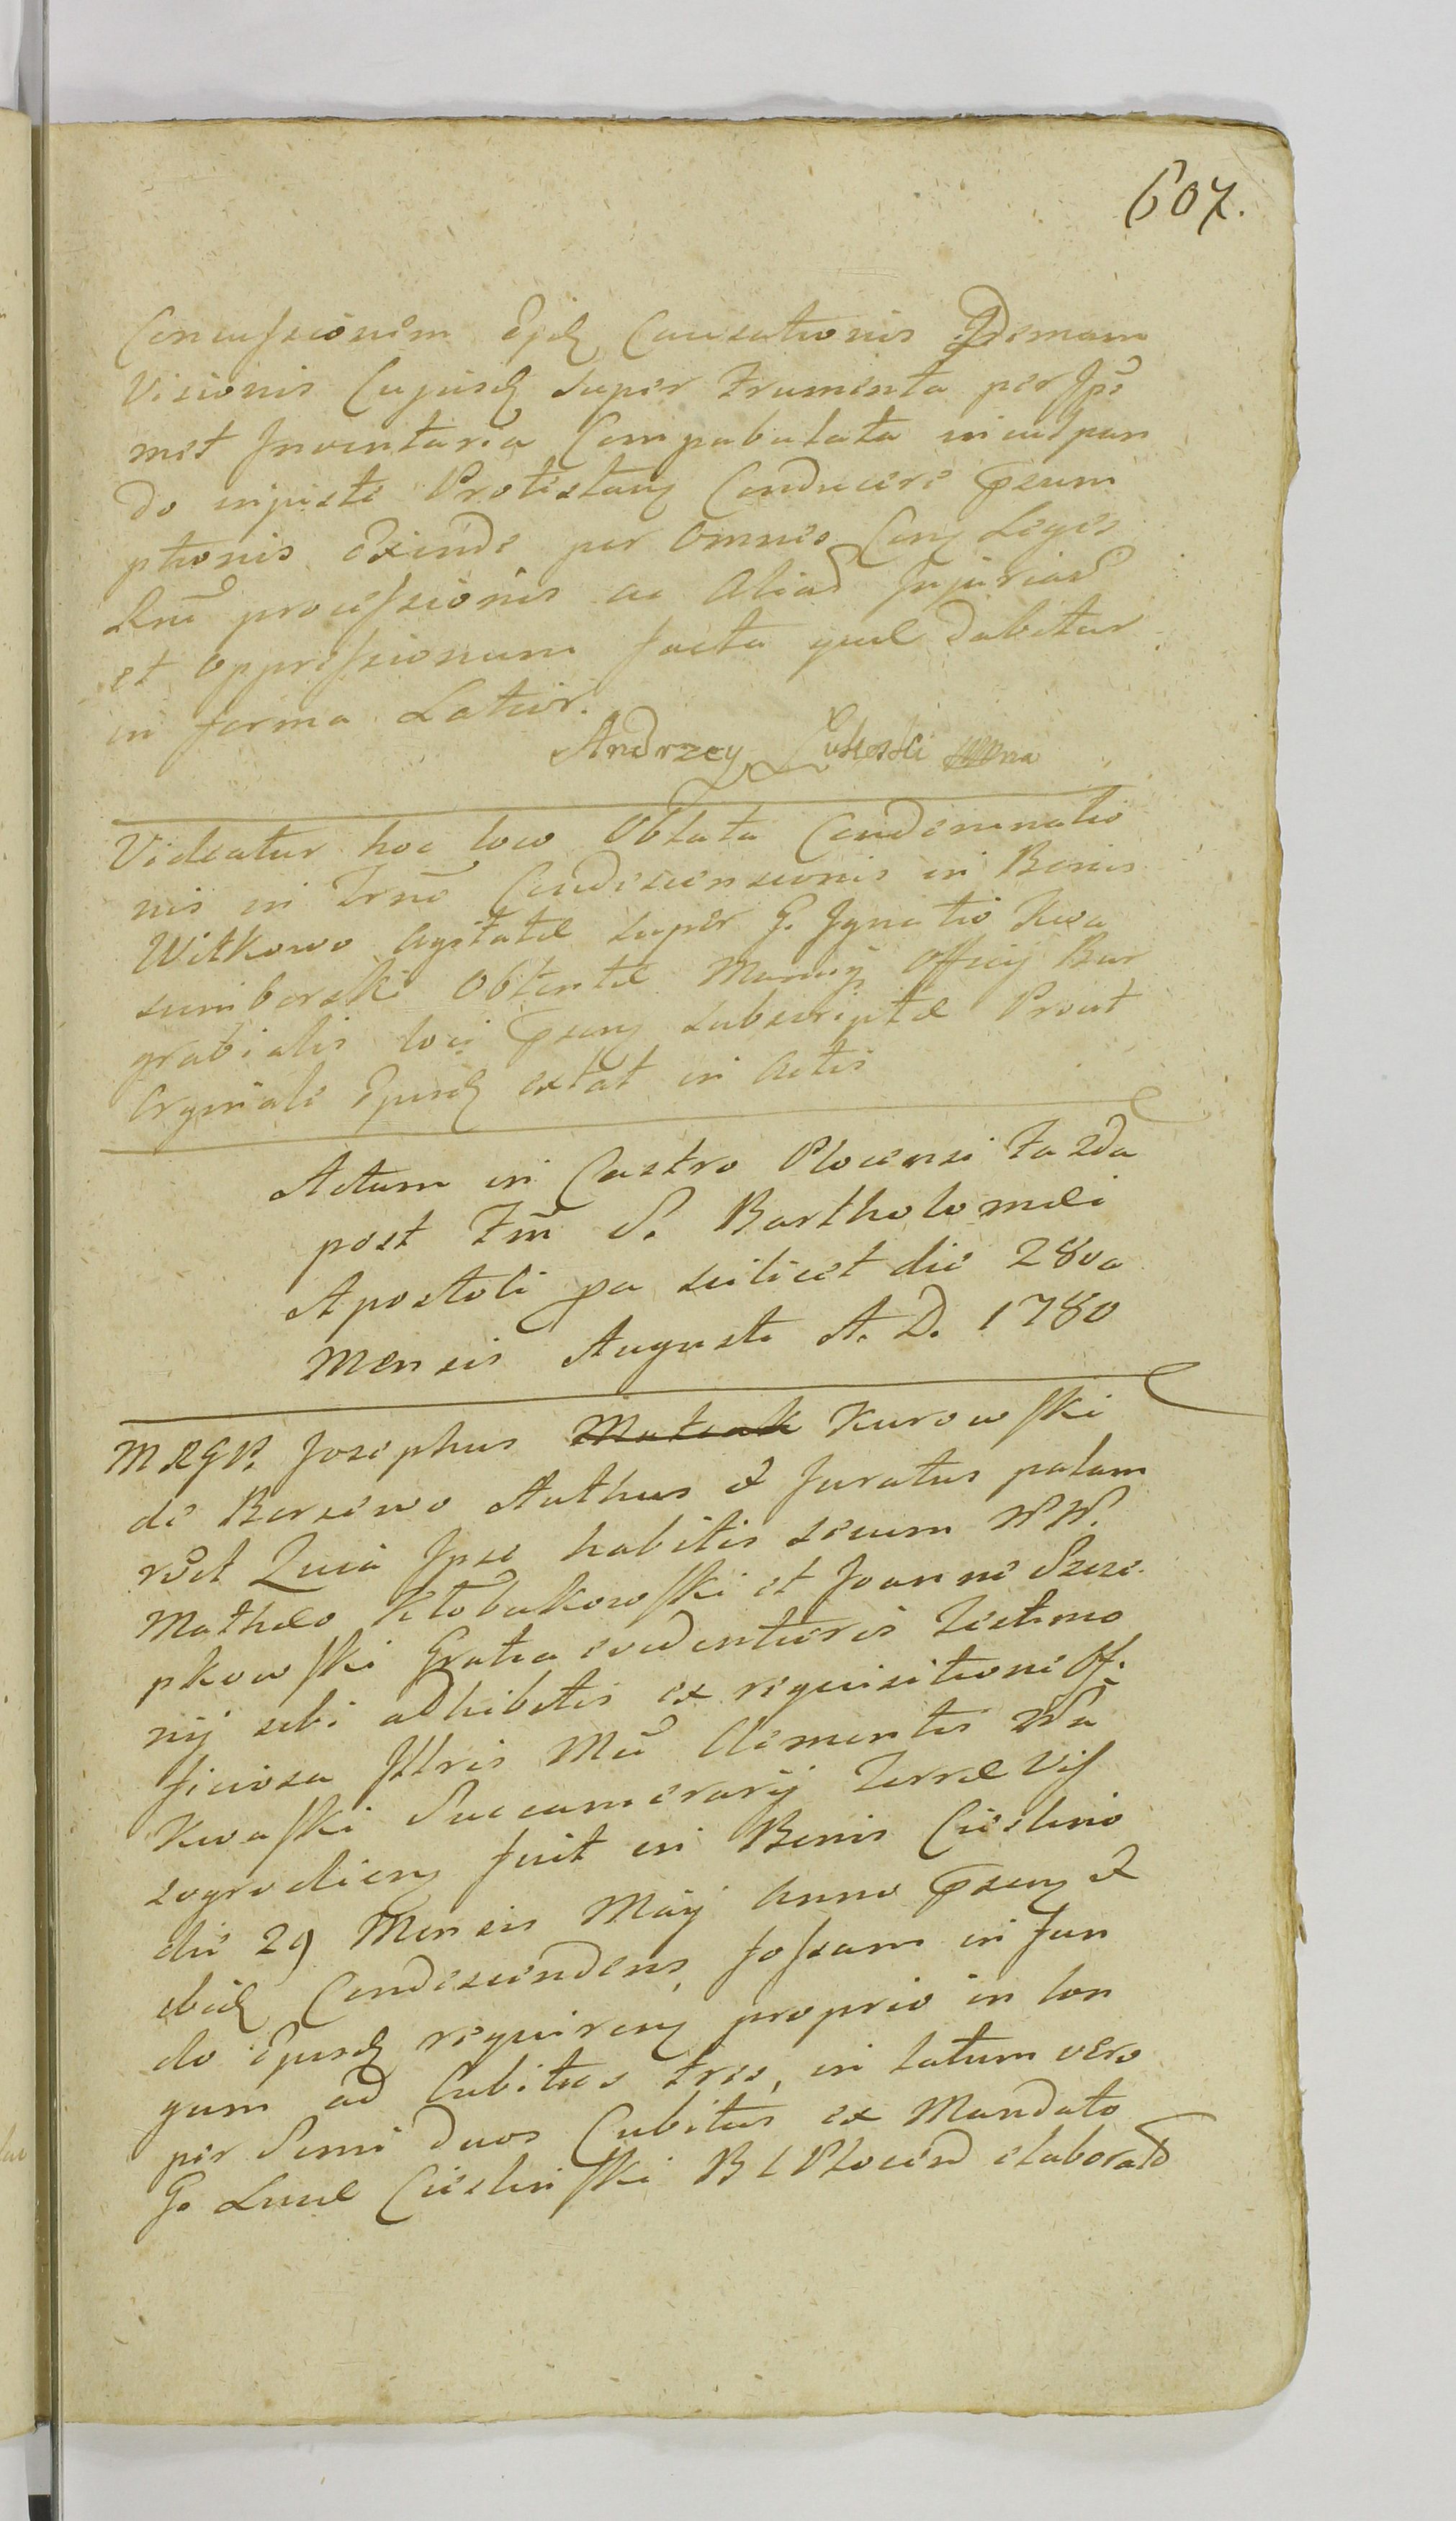 607.
Concussionem Ejusd Causationis
Visionis Cujusd super Frumenta per Ips
met Inventaria Compabulata inculpan
do injuste Protestant Conducere Praesum
ptionis Exinde per omnes Leges
processionis ac Aliar Injuriar
et oppressionum facta quae dabitur
in forma Latior.
Andrzey mna
Videatur hoc loco Oblata Condemnatio
nis in Trno Condescensionis in Bonis
Witkowo agitatae super G. Ignatio Kwa
sumborski Obtentae Manuij Officij Bur
grabialis loci psens subscriptae Prout
Orginale Ejusd extat in Actis
Actum in Castro Plocensi Fa 2da
post Fm S. Bartholomaei
Apostoli pa scilicet die 28va
Mensis Augusti A. D. 1780
MRGP. Josephus Kurowski
de Borzewo Authus & Juratus palam
rõt Quia Ipse habitis secum NN.
Mathaeo Kłobukowski et Joanne Szcze
pkowski Gratia evidentioris Testimo
nij sibi adhibitis ex requisitione Of
ficiosa Illris Mci Clementis Na
kwaski Succamerarij Terrae Vis
sogrodiens fuit in Bonis Cieslino
die 29 Mensis Maij Anno psenti &
ibid Condescendens, fossam in fun
do Ejusd requirens proprio in lon
gum ad Cubitus tres, in latum vero
per Semi duos Cubitus ex Mandato
G. Lucae Cieslinski B C Plocens elaborat